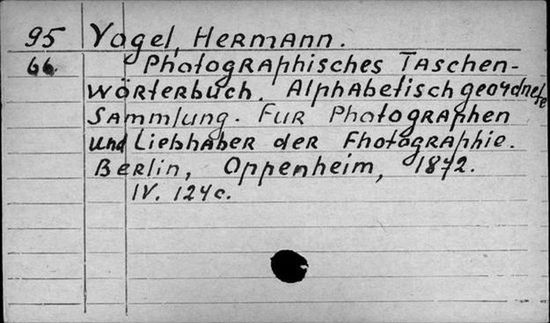 95 Vogel, Hermann.
66. Photographisches Taschen-
wörterbuch. Alphabetisch geordnete
Sammlung. Für Photographen
und Liebhaber der Fhotographie.
Berlin, Oppenheim, 1872.
IV. 124 c.